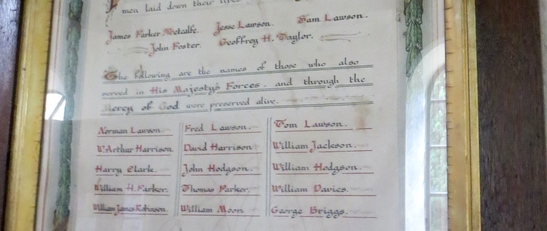 men laid down their lives
James Parker Metcalfe. Jesse Lawson. Sam Lawson.
John Foster. Geoffrey H. Taylor.
The following are the names of those who also
served in His Majesty's Forces and through the
Mercy of God were preserved alive.
Norman Lawson. Fred Lawson. Tom Lawson.
W. Arthur Harrison. David Harrison. William Jackson.
Harry Clark. John Hodgson. William Hodgson.
William H. Parker. Thomas Parker. William Davies.
William James Robinson. William Moon. George Briggs.